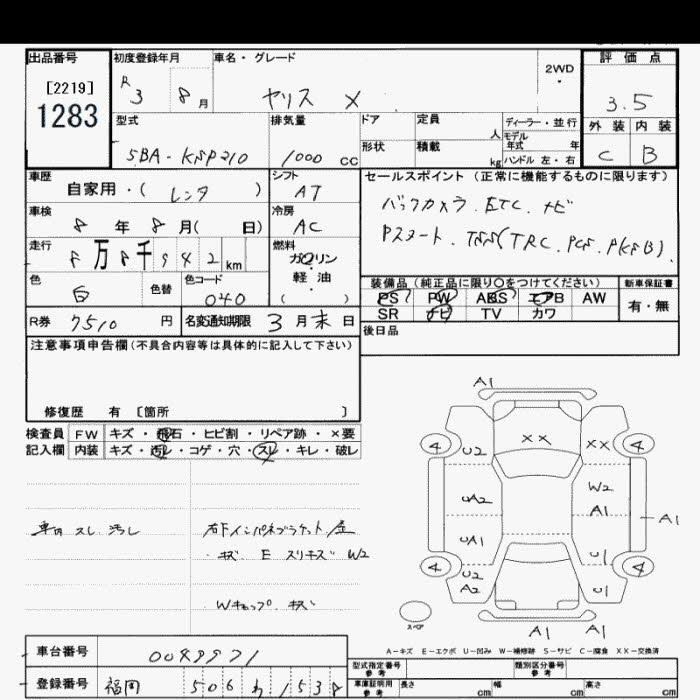 出品番号
[2219]
1283
初度登録年月
R 3 8 月
車名・グレード
ヤリス X
2WD
評価点
3.5
外装 内装
C B
型式
5BA-KSP210
排気量
1000 cc
ドア
定員
人
形状
積載
kg
ディーラー・並行
モデル年式 年
ハンドル 左・右
車歴
自家用・( レンタ )
シフト
AT
セールスポイント (正常に機能するものに限ります)
バックカメラ. ETC. ナビ
Pスタート. TSS(TRC. PCS. PKSB)
車検
8 年 8 月( 日)
冷房
AC
走行
8万8千942km
燃料
ガソリン
・
軽油
( )
色
白
色替
色コード
040
装備品 (純正品に限り○をつけてください)
PS PW ABS エアB AW
SR ナビ TV カワ
新車保証書
有・無
R券 7510 円
名変通知期限 3月末日
後日品
注意事項申告欄(不具合内容等は具体的に記入して下さい)
修復歴 有 〔箇所 〕
検査員記入欄
FW キズ・飛石・ヒビ割・リペア跡・×要
内装 キズ・汚レ・コゲ・穴・スレ・キレ・破レ
車内 スレ 汚レ
右下インパネブラケット/
キズ E スリキズ W2
Wキャップ キズ
A1
4 U2 XX XX 4
UA2 W2
A1 A1
UA1
4 U2 U1 4
A2 U1
スペア
A1 A1
A-キズ E-エクボ U-凹み W-補修跡 S-サビ C-腐食 XX-交換済
車台番号
0089971
登録番号
福岡 506 わ 1538
型式指定番号
参考
類別区分番号
参考
車庫証明用
参考
長さ cm
幅 cm
高さ cm